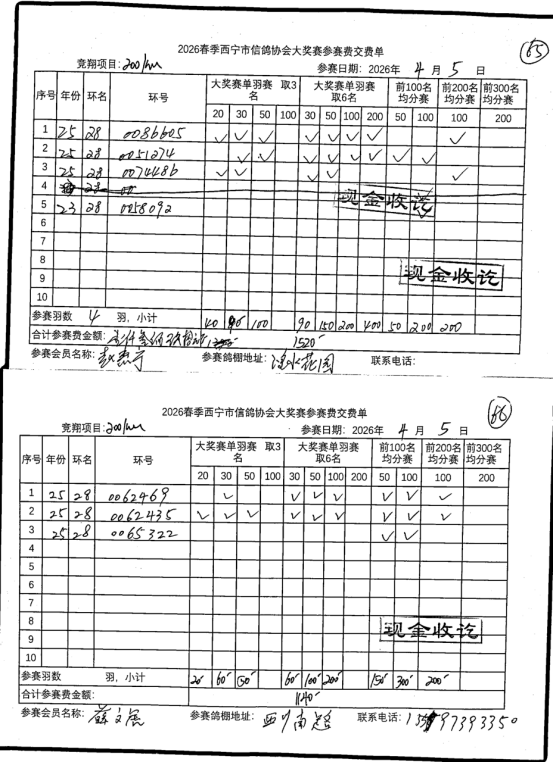 65
2026春季西宁市信鸽协会大奖赛参赛费交费单
竞翔项目:200km 参赛日期: 2026年 4 月 5 日
序号 年份 环名 环号 大奖赛单羽赛 取3名 大奖赛单羽赛 取6名 前100名均分赛 前200名均分赛 前300名均分赛
20 30 50 100 30 50 100 200 50 100 100 200
1 25 28 0086605 ✓ ✓ ✓ ✓ ✓ ✓ ✓ ✓
2 25 28 0051274 ✓ ✓ ✓ ✓ ✓ ✓ ✓ ✓
3 25 28 0074486 ✓ ✓ ✓ ✓ ✓
4 28 00
现金收讫
5 23 28 0058092
6
7
8
现金收讫
9
10
参赛羽数 4 羽, 小计 40 90 100 90 150 200 400 50 200 200
合计参赛费金额: 1520
参赛会员名称: 参赛鸽棚地址: 联系电话:
66
2026春季西宁市信鸽协会大奖赛参赛费交费单
竞翔项目:200km 参赛日期: 2026年 4 月 5 日
序号 年份 环名 环号 大奖赛单羽赛 取3名 大奖赛单羽赛 取6名 前100名均分赛 前200名均分赛 前300名均分赛
20 30 50 100 30 50 100 200 50 100 100 200
1 25 28 0062469 ✓ ✓ ✓ ✓ ✓ ✓ ✓
2 25 28 0062435 ✓ ✓ ✓ ✓ ✓ ✓ ✓ ✓ ✓
3 25 28 0065322 ✓ ✓
4
5
6
7
8
现金收讫
9
10
参赛羽数 羽, 小计 20 60 50 60 100 200 150 300 200
合计参赛费金额: 1140
参赛会员名称: 参赛鸽棚地址: 联系电话: